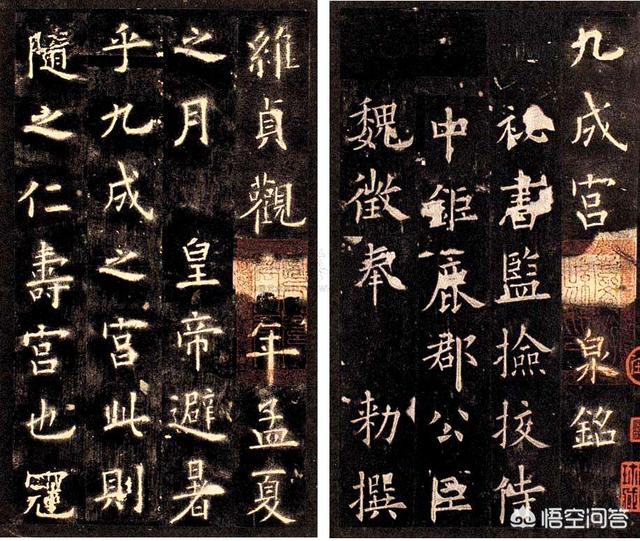 九成宮 泉銘
秘書監撿挍侍
中鉅鹿郡公臣
魏徵奉 勑撰
維貞觀 年孟夏
之月 皇帝避暑
乎九成之宮此則
隨之仁壽宮也冠
悟空问答